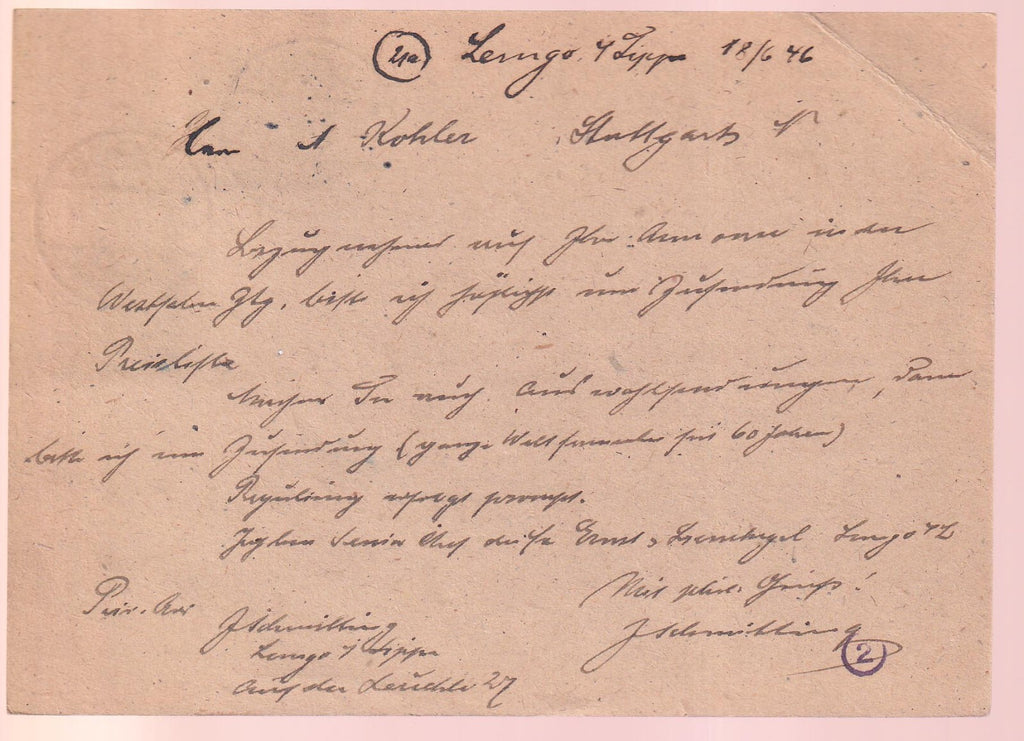 21a Lemgo i/Lippe 18/6 46
Herrn A Kohler Stuttgart N
Bezugnehmend auf Ihre Annonce in der
Westfalen Ztg, bitte ich höflichst um Zusendung Ihrer
Preisliste
Machen Sie auch Auswahlsendungen, dann
bitte ich um Zusendung (ganze Welt Sammler seit 60 Jahren)
Regulierung erfolgt prompt.
Senior Chef der Fa Ernst Lemgo i/L
Mit phil. Gruß!
Priv. Adr JSchmitting JSchmitting
Lemgo i/Lippe 2
Auf der Leuchte 27